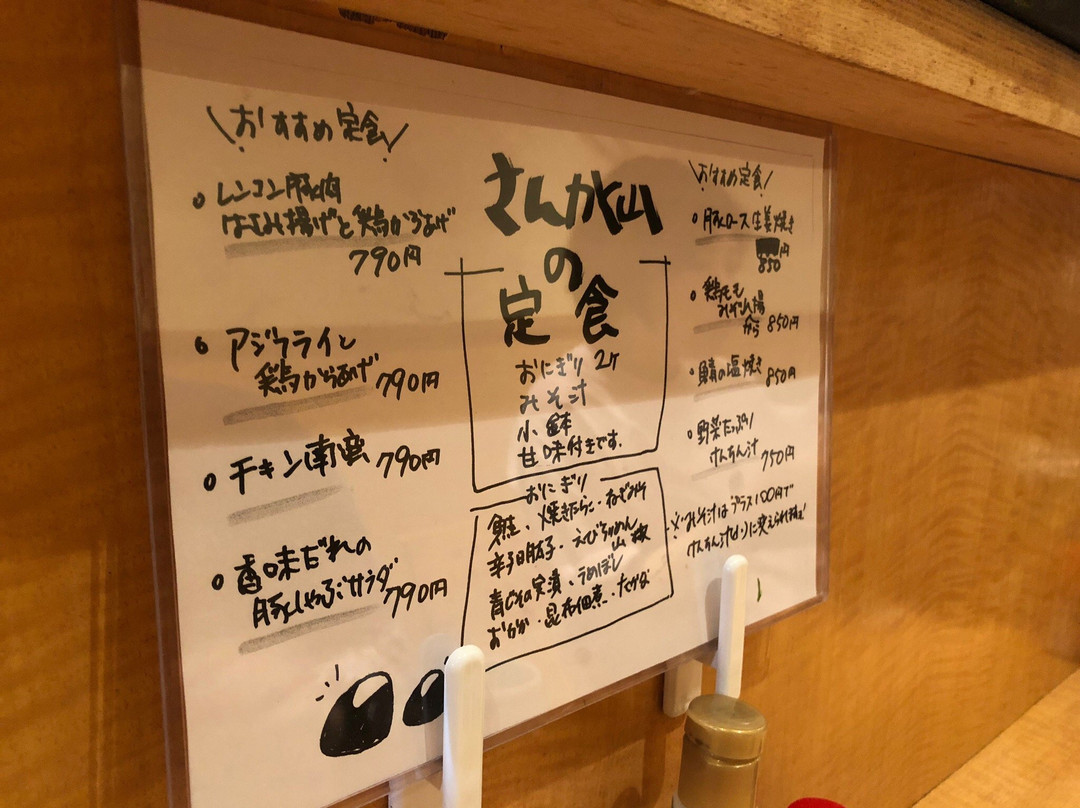 おすすめ定食
レンコン豚肉
はさみ揚げと鶏からあげ
790円
アジフライと
鶏からあげ 790円
チキン南蛮 790円
香味だれの
豚しゃぶサラダ 790円
さんが山
の
定食
おにぎり2ケ
みそ汁
小鉢
甘味付きです.
おにぎり
鮭・焼きたらこ・ねぎみそ
辛子明太子・えびちりめん
山椒
青じその実漬・うめぼし
おかか・昆布佃煮・たかな
おすすめ定食
豚ロース生姜焼き
円
850
鶏もも
みぞれ揚
から 850円
鯖の塩焼き 850円
野菜たっぷり
けんちん汁 750円
※みそ汁はプラス100円で
けんちん汁に変えられます!